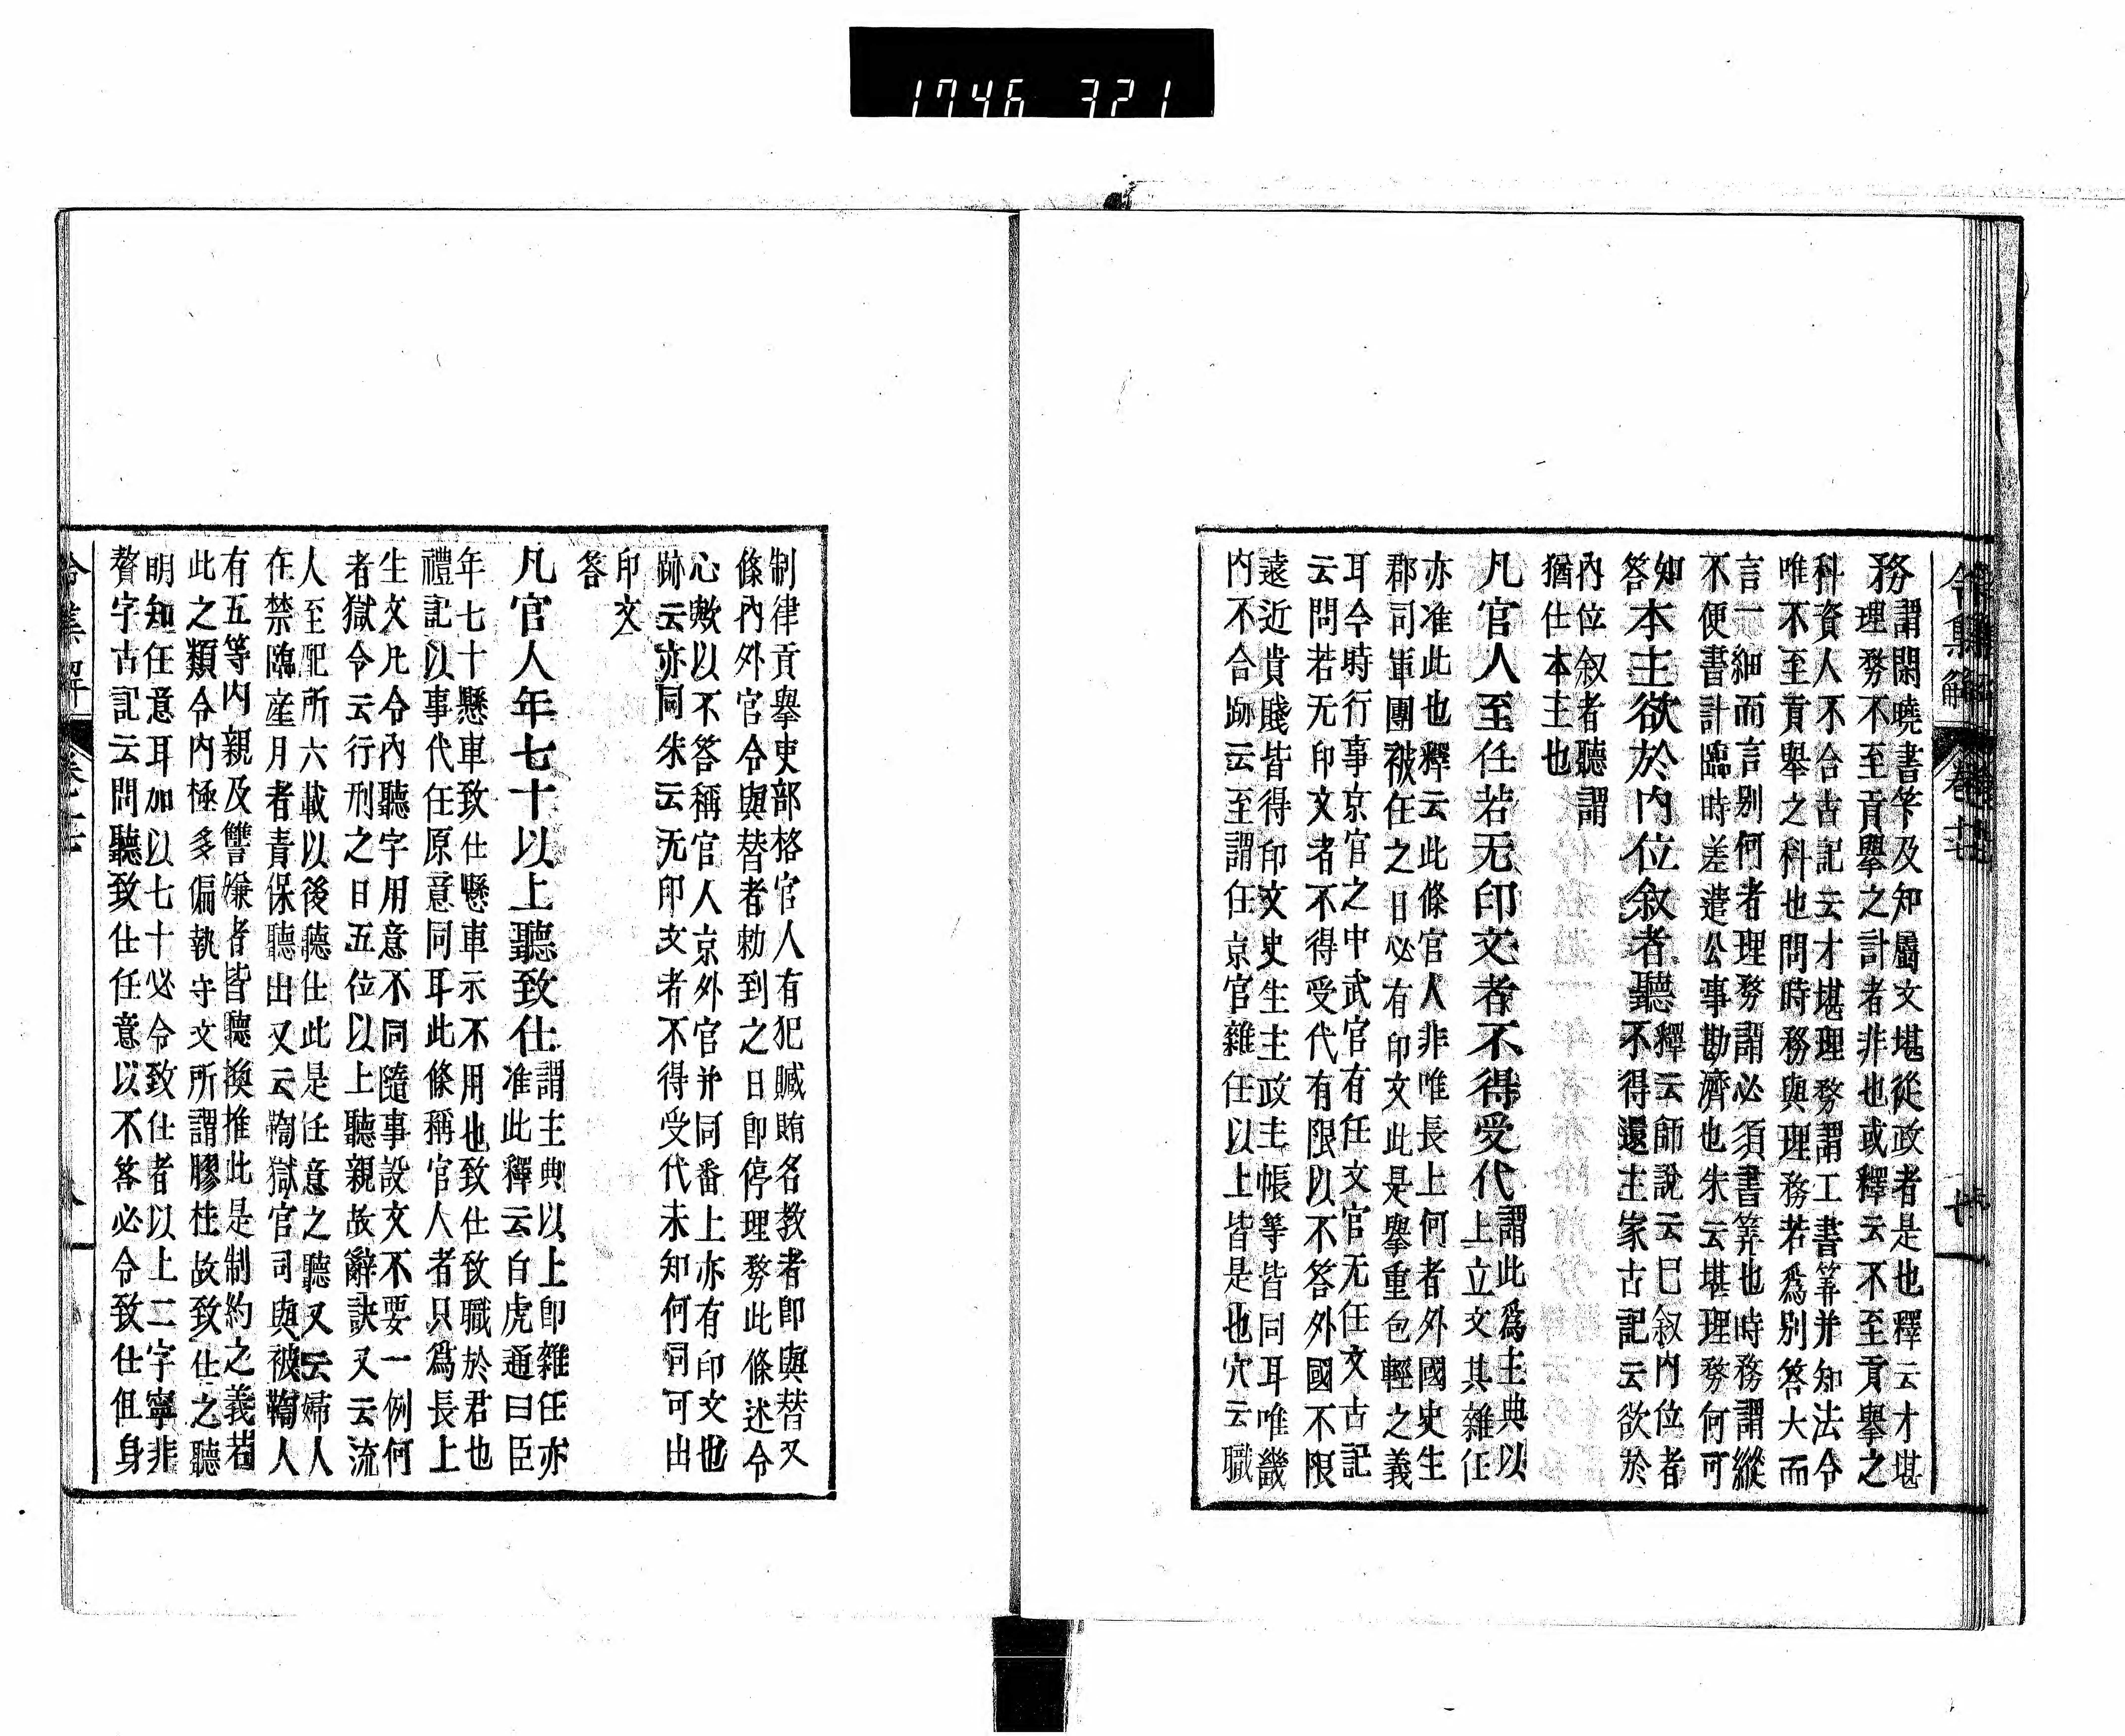 1746 321
令集解 卷十七
務謂閑曉書竿及知屬文堪從政者是也釋云才堪
理務不至貢擧之計者非也或釋云不至貢擧之
科資人不合古記云才堪理務謂工書筭并知法令
唯不至貢舉之科也問時務與理務若爲別答大而
言一細而言別何者理務謂必須書筭也時務謂縱
不便書計臨時差遣公事勘濟也朱云堪理務何可
知
答本主欲於内位叙者聽釋云師說云已叙内位者
不得還主家古記云欲於
内位叙者聽謂
猶仕本主也
凡官人至任若无印文者不得受代謂此爲主典以
上立文其雜任
亦准此也釋云此條官人非唯長上何者外國史生
郡司軍團被任之日必有印文此是擧重包輕之義
耳今時行事京官之中武官有任文官无任文古記
云問若无印文者不得受代有限以不答外國不限
遠近貴賤皆得印文史生主政主帳等皆同耳唯畿
内不合跡云至謂任京官雜任以上皆是也穴云職
制律貢擧吏部格官人有犯贓賄名教者卽與替又
條内外官令與替者勅到之日卽停理務此條述令
心歟以不答稱官人京外官并同番上亦有印文也
跡云亦同朱云无印文者不得受代未知何同可出
印文
答
凡官人年七十以上聽致仕謂主典以上卽雜任亦
准此釋云白虎通曰臣
年七十懸車致仕懸車示不用也致仕致職於君也
禮記以事代任原意同耳此條稱官人者只爲長上
生文凡令内聽字用意不同隨事設文不要一例何
者獄令云行刑之日五位以上聽親故辭訣又云流
人至配所六載以後聽仕此是任意之聽又云婦人
在禁臨産月者責保聽出又云鞫獄官司與被鞫人
有五等内親及讐嫌者皆聽換推此是制約之義若
此之類令内極多偏執守文所謂膠柱故致仕之聽
明知任意耳加以七十必令致仕者以上二字寧非
贅字古記云問聽致仕任意以不答必令致仕但身